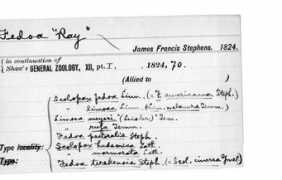 Fedoa "Ray"
James Francis Stephens. 1824.
(in continuation of
Shaw's GENERAL ZOOLOGY, XII, pt.I, , 1824, 70.
(Allied to )
Scolopax fedoa Linn. (= F. americana Steph.)
" limosa Linn. melanura
Limosa meyeri (Leisler) Tem.
" rufa Temm.
Fedoa pectoralis Steph.
Type locality: Scolopax hudsonica Lath.
" marmorata Lath.
Type: Fedoa terekensis Steph. (= Scol. cinerea